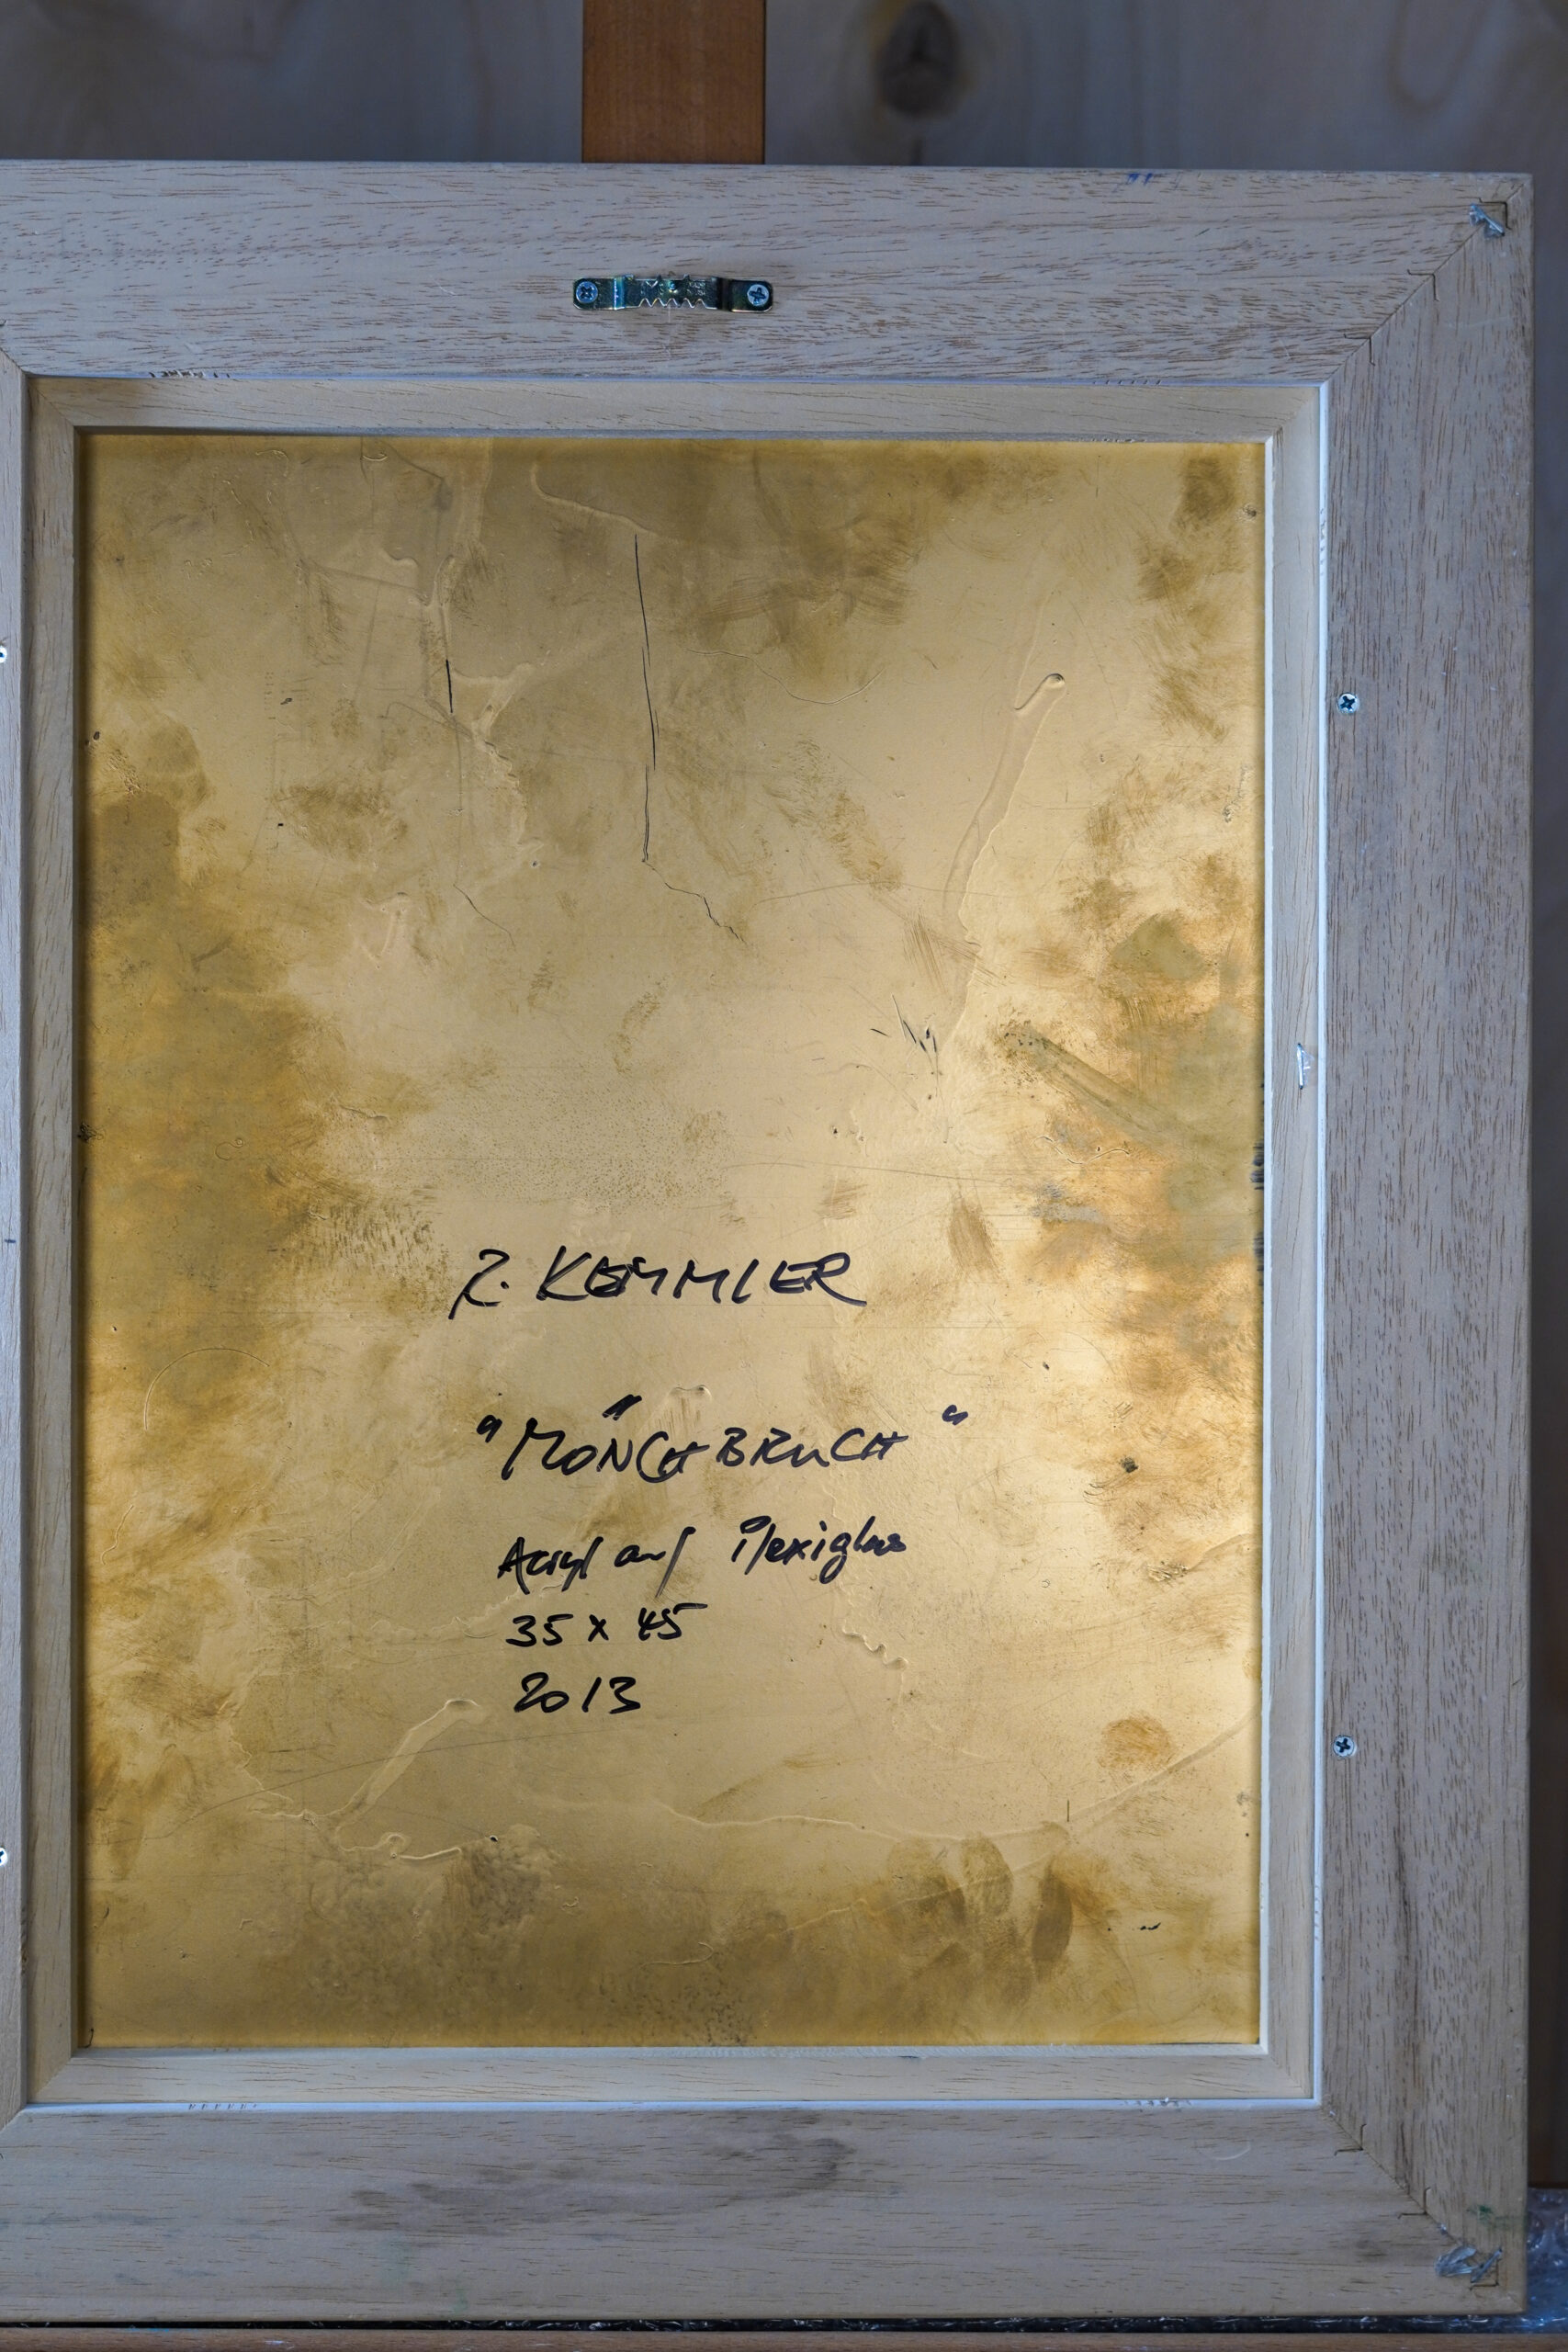 R. KEMMLER
"MÖNCHBRUCH"
Acryl auf Plexiglas
35 x 45
2013